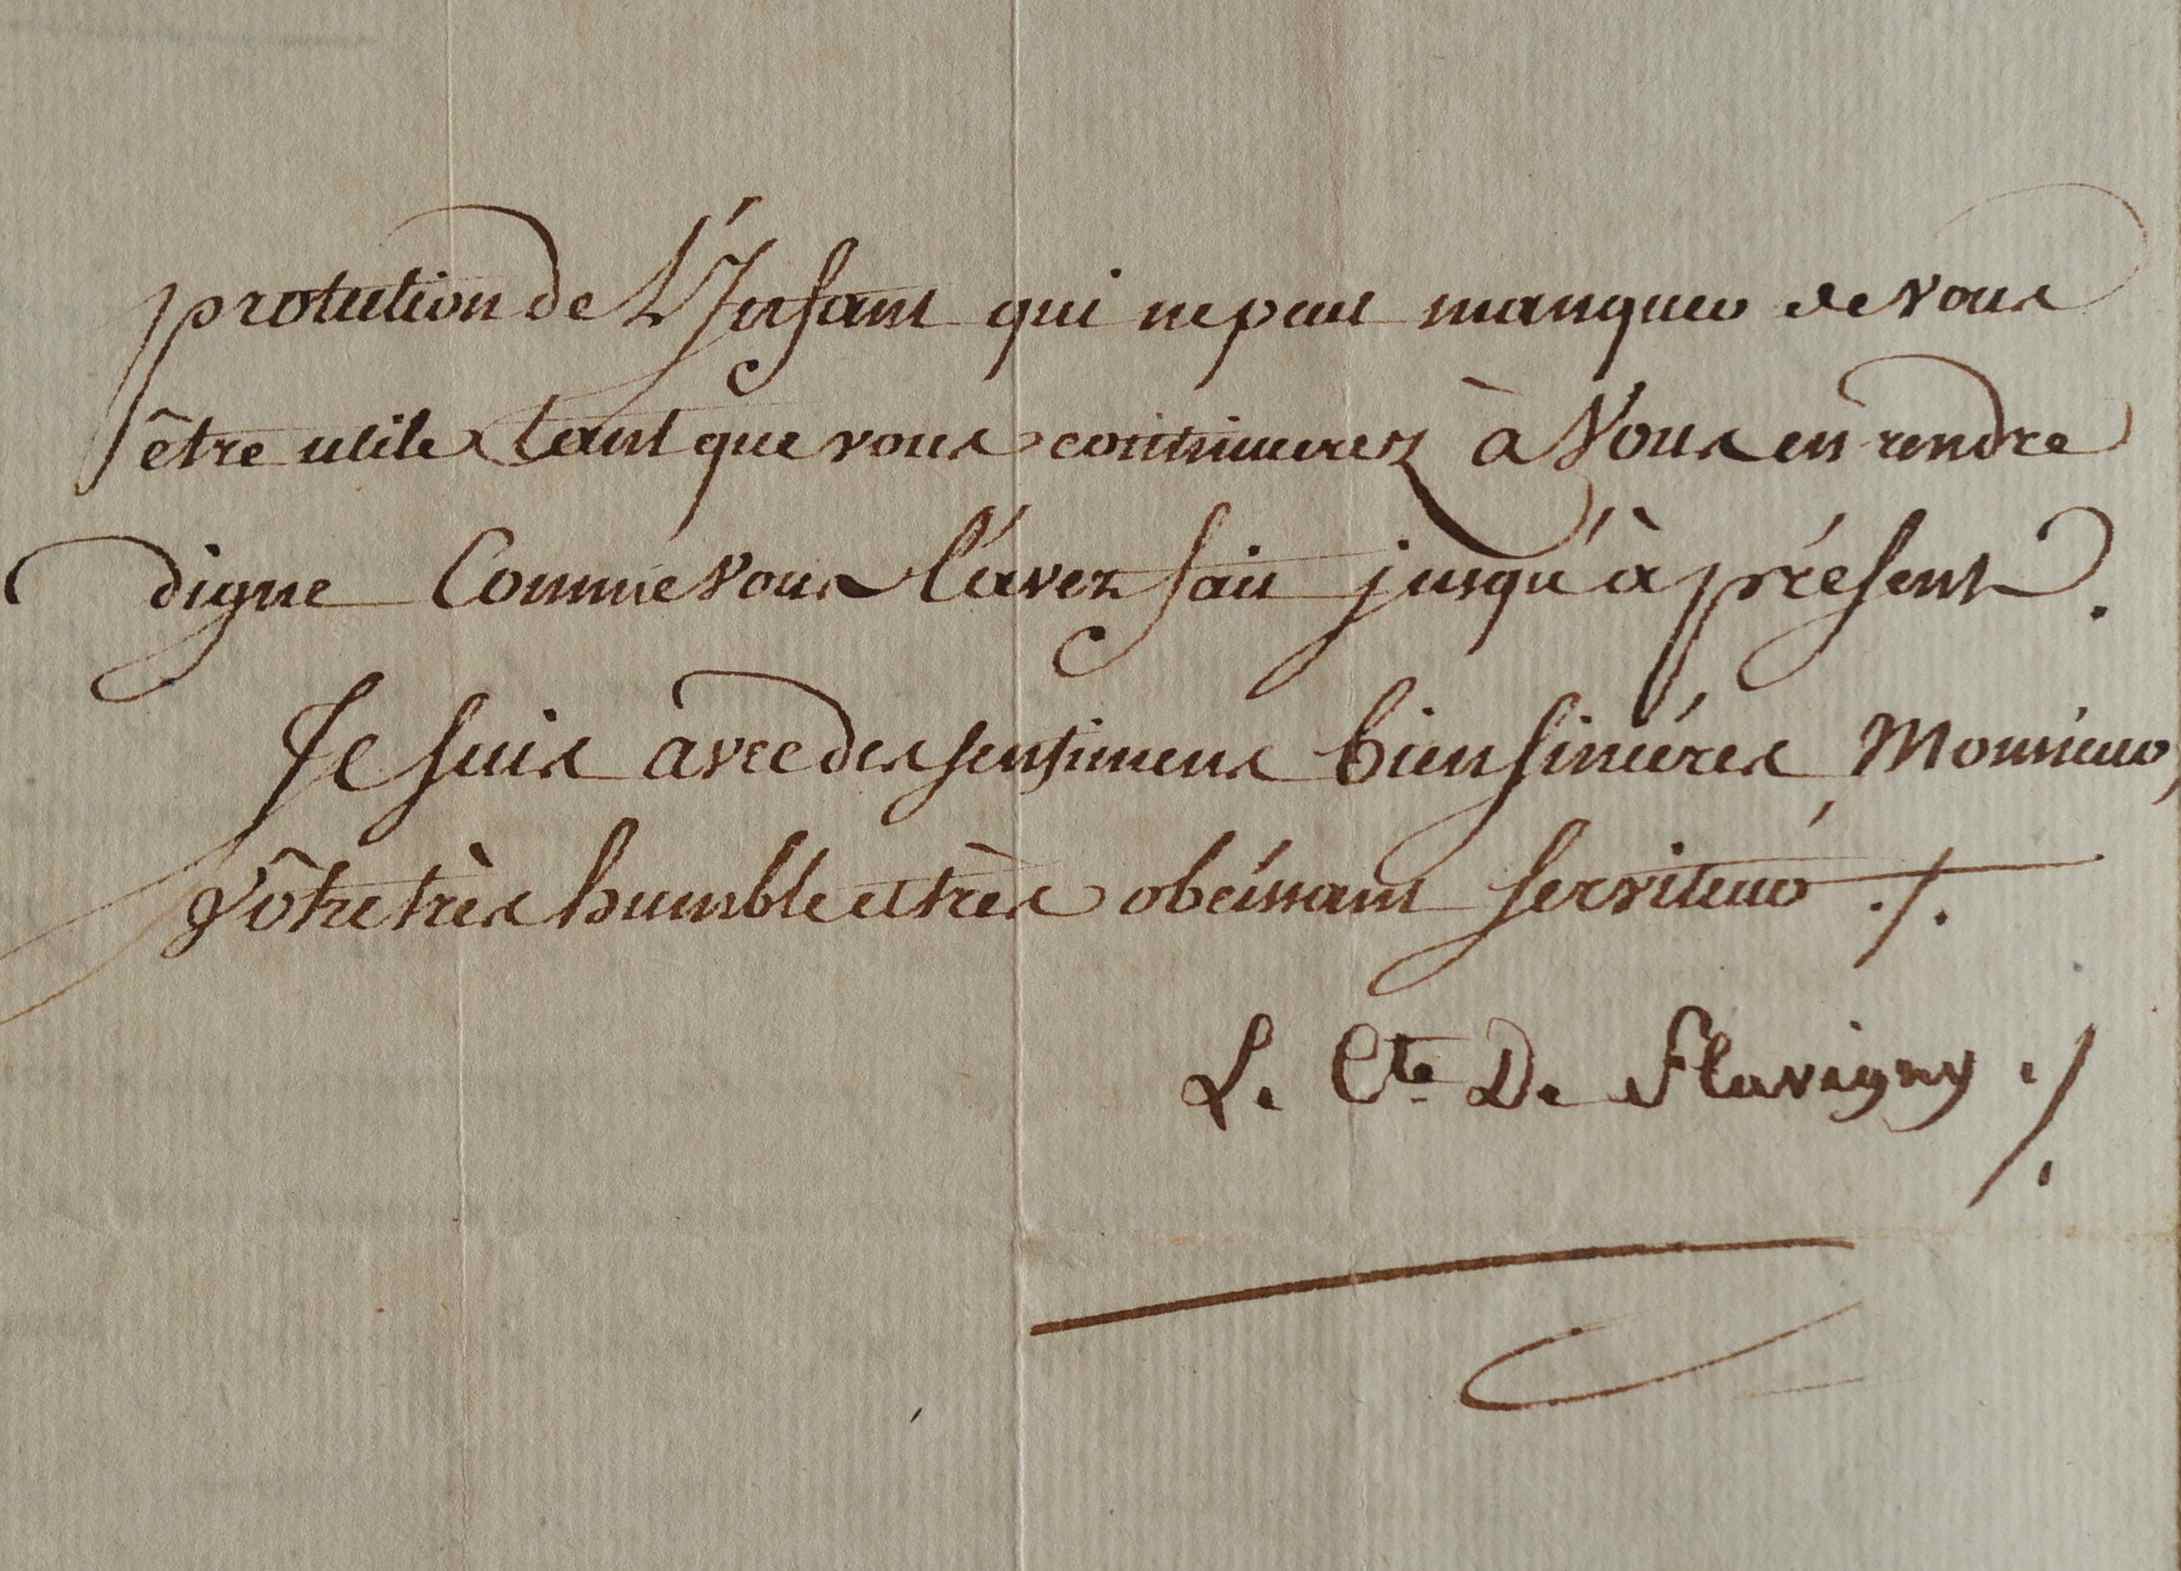 protection de L'Infant qui ne peut manquer de vous
être utile tant que vous continuerez à Vous en rendre
digne Comme vous l'avez fait jusqu'à présent.
Je suis avec des sentimens bien sincéres, Monsieur,
Vôtre très humble et très obéissant serviteur ./.
Le Cte De Flavigny ./.